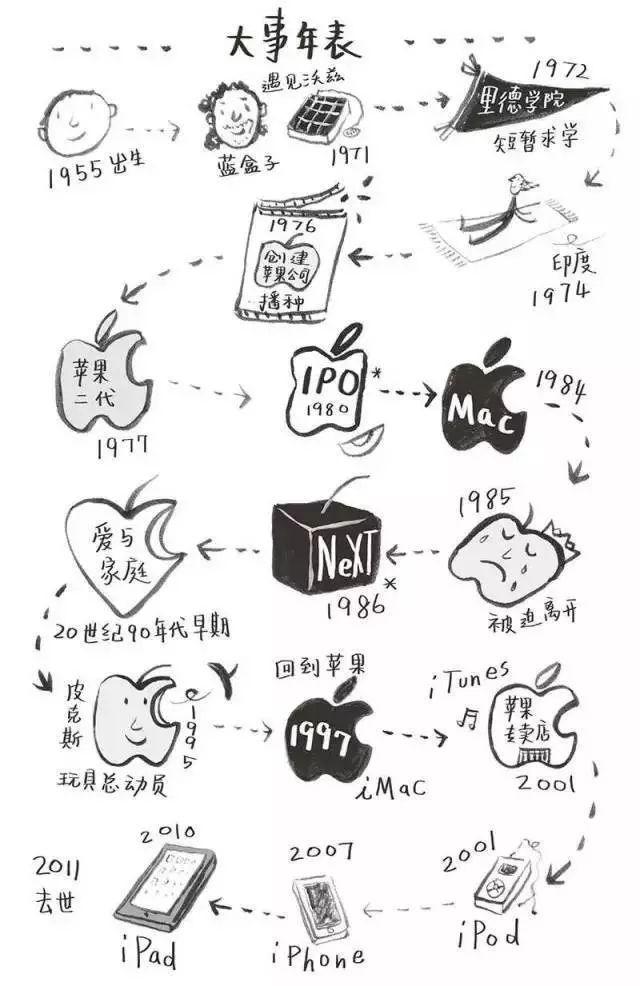 大事年表
1955出生
遇见沃兹
蓝盒子
1971
1972
里德学院
短暂求学
印度
1974
1976
创建
苹果公司
播种
苹果
二代
1977
IPO*
1980
Mac
1984
1985
被迫离开
NeXT
1986*
爱与
家庭
20世纪90年代早期
皮克斯
1995
玩具总动员
回到苹果
1997
iMac
iTunes
苹果
专卖店
2001
2001
iPod
2007
iPhone
2010
iPad
2011
去世